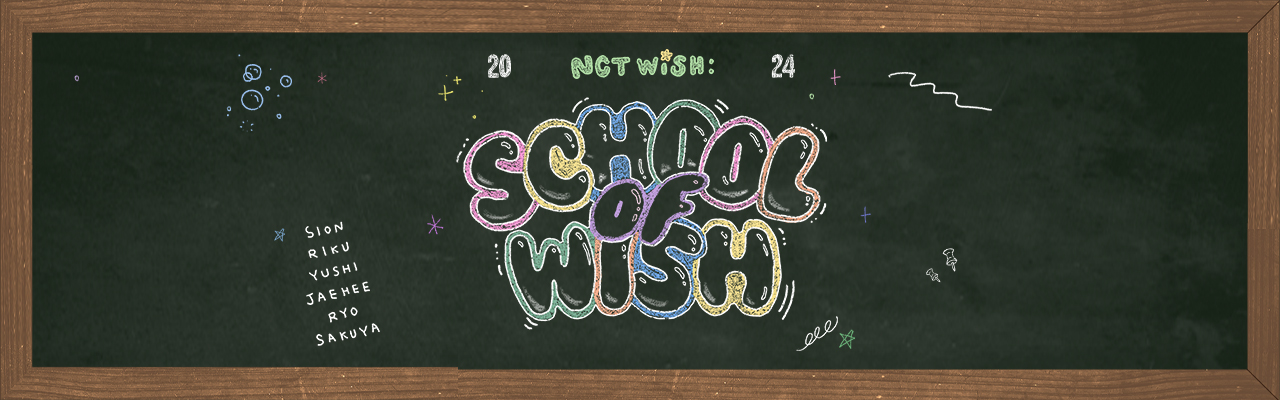 20 NCT WiSH: 24
SCHOOL
OF
WISH
SION
RIKU
YUSHI
JAEHEE
RYO
SAKUYA